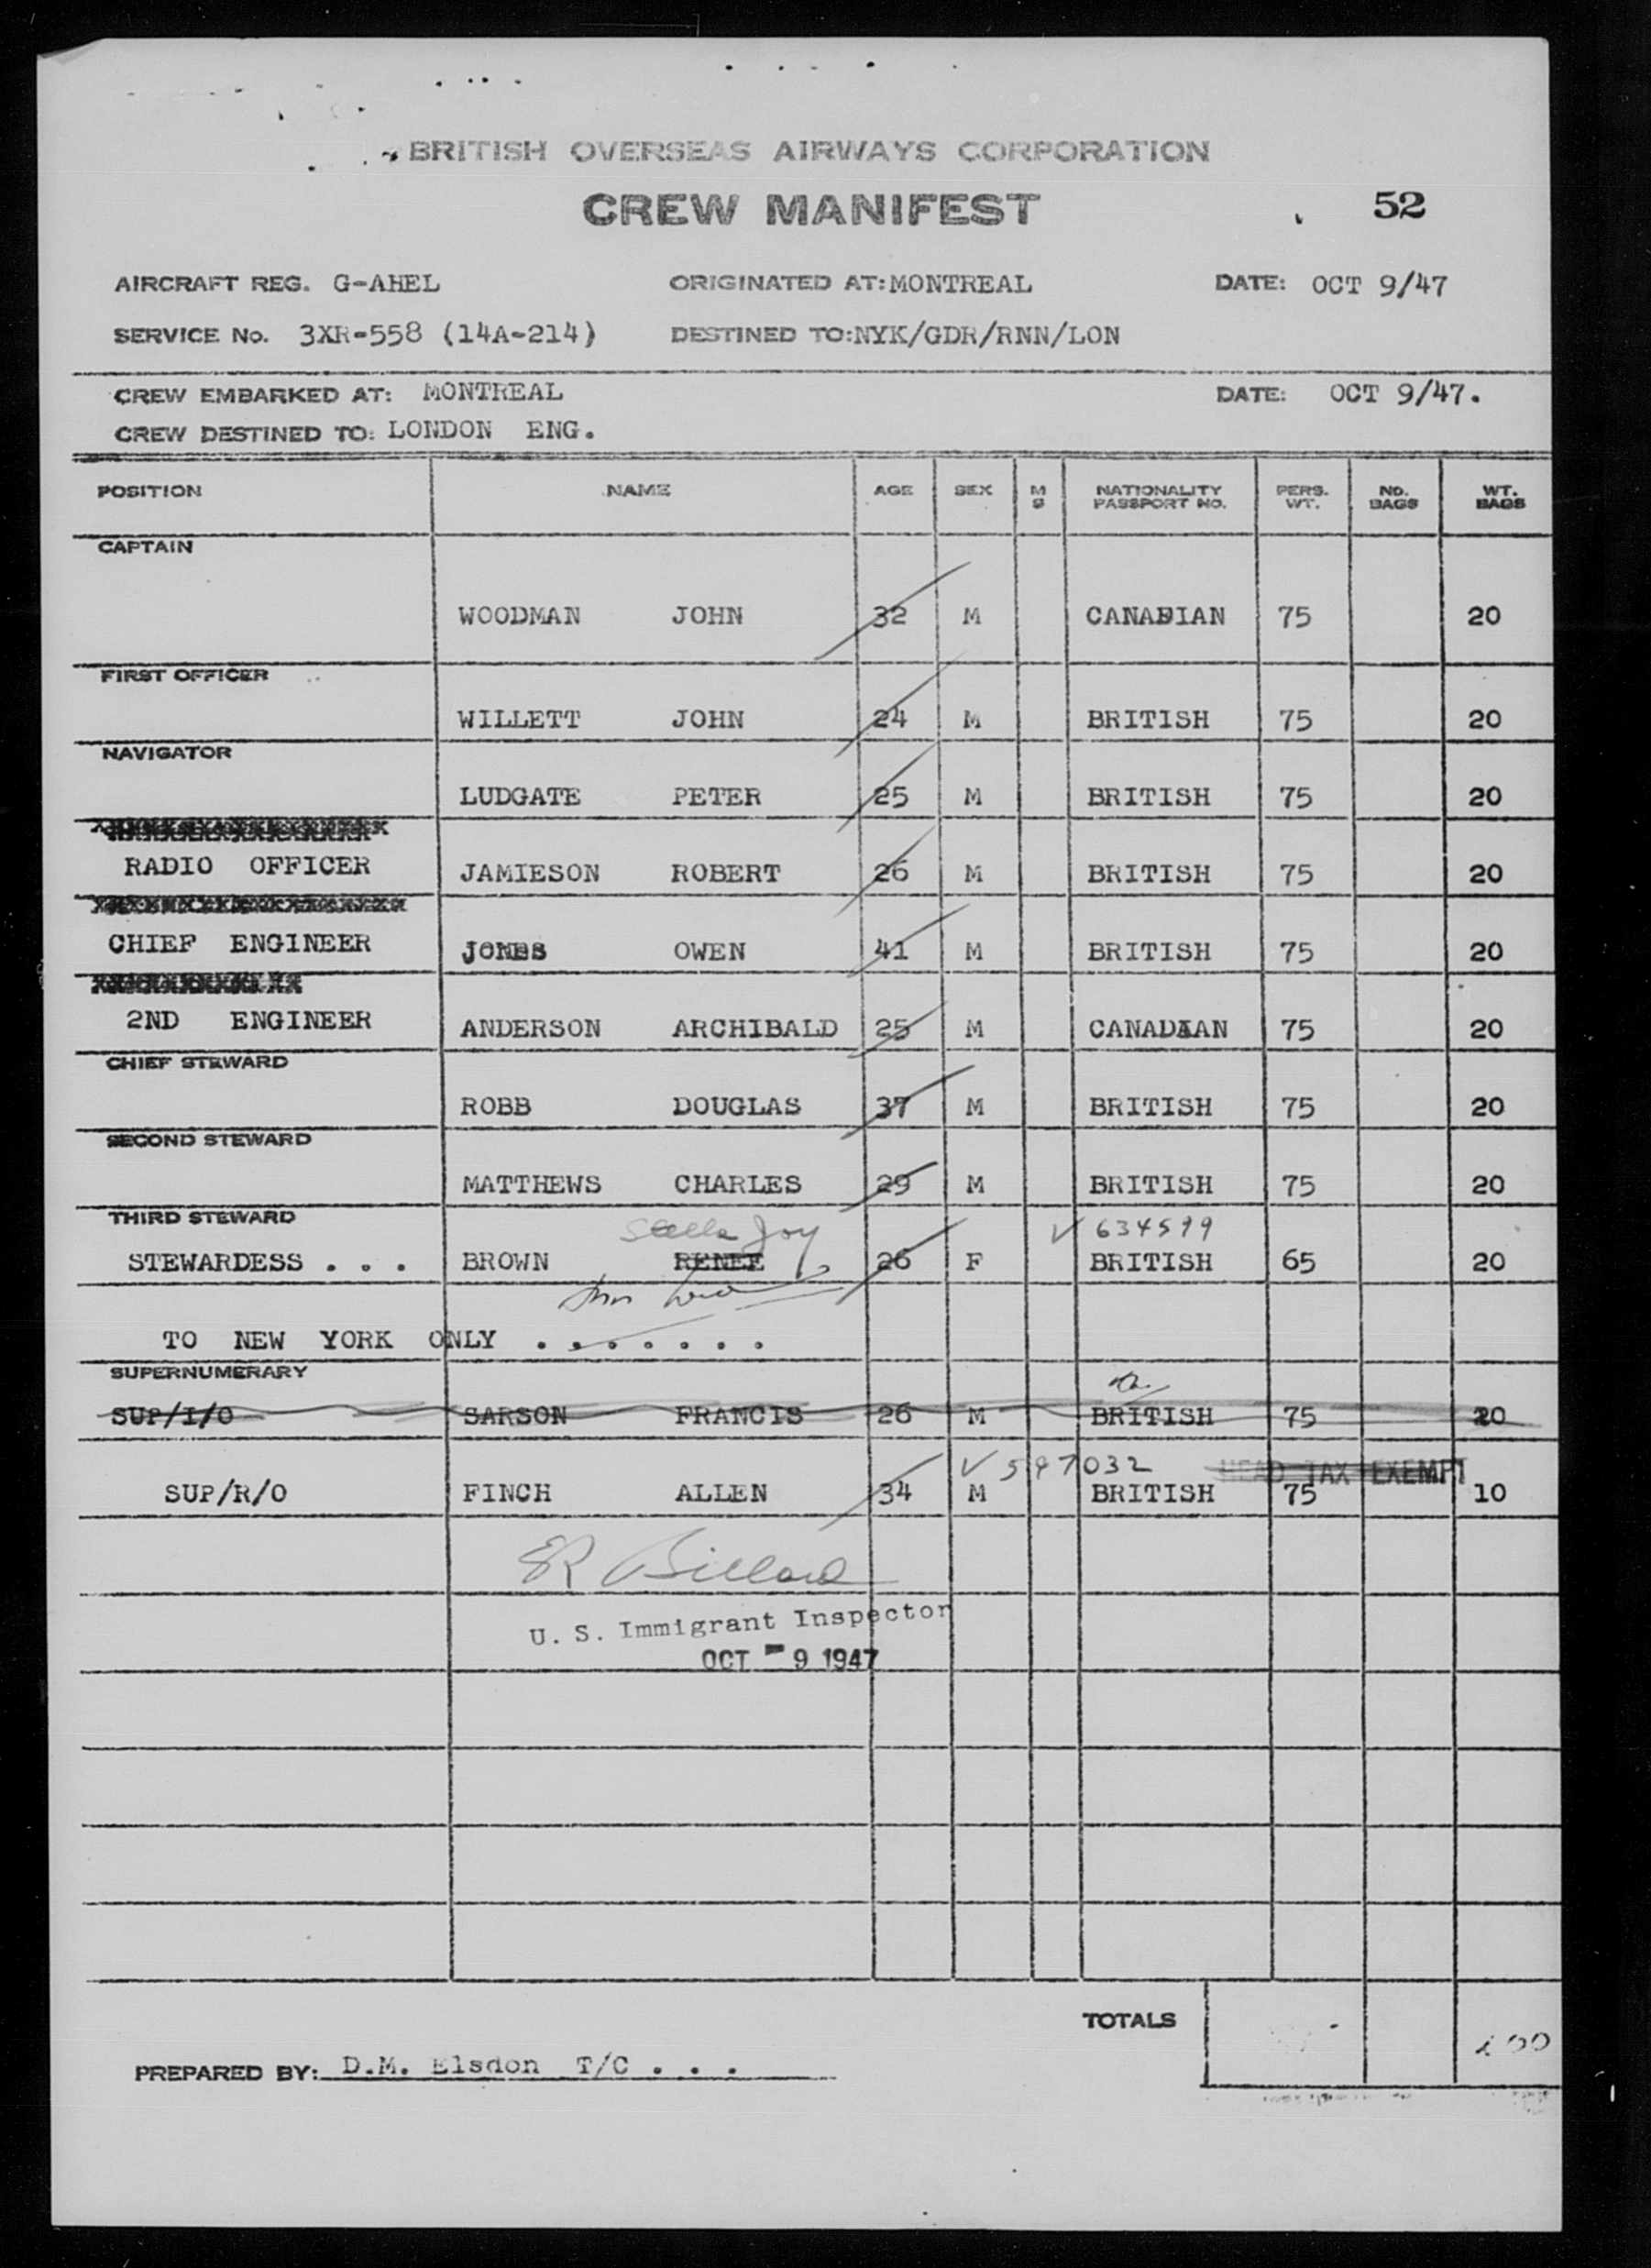 BRITISH OVERSEAS AIRWAYS CORPORATION
CREW MANIFEST 52
AIRCRAFT REG. G-AHEL ORIGINATED AT: MONTREAL DATE: OCT 9/47
SERVICE No. 3XR-558 (14A-214) DESTINED TO: NYK/GDR/RNN/LON
CREW EMBARKED AT: MONTREAL DATE: OCT 9/47.
CREW DESTINED TO: LONDON ENG.
POSITION NAME AGE SEX M S NATIONALITY PASSPORT NO. PERS. WT. NO. BAGS WT. BAGS
CAPTAIN
WOODMAN JOHN 32 M CANADIAN 75 20
FIRST OFFICER
WILLETT JOHN 24 M BRITISH 75 20
NAVIGATOR
LUDGATE PETER 25 M BRITISH 75 20
RADIO OFFICER JAMIESON ROBERT 26 M BRITISH 75 20
CHIEF ENGINEER JONES OWEN 41 M BRITISH 75 20
2ND ENGINEER ANDERSON ARCHIBALD 25 M CANADIAN 75 20
CHIEF STEWARD
ROBB DOUGLAS 37 M BRITISH 75 20
SECOND STEWARD
MATTHEWS CHARLES 29 M BRITISH 75 20
THIRD STEWARD Stella Joy √ 634599
STEWARDESS . . . BROWN RENEE 26 F BRITISH 65 20
TO NEW YORK ONLY . . . . . . .
SUPERNUMERARY
SUP/I/O SARSON FRANCIS 26 M BRITISH 75 20
√ 597032 HEAD TAX EXEMPT
SUP/R/O FINCH ALLEN 34 M BRITISH 75 10
ER Billard
U. S. Immigrant Inspector
OCT - 9 1947
TOTALS
PREPARED BY: D.M. Elsdon T/C . . .